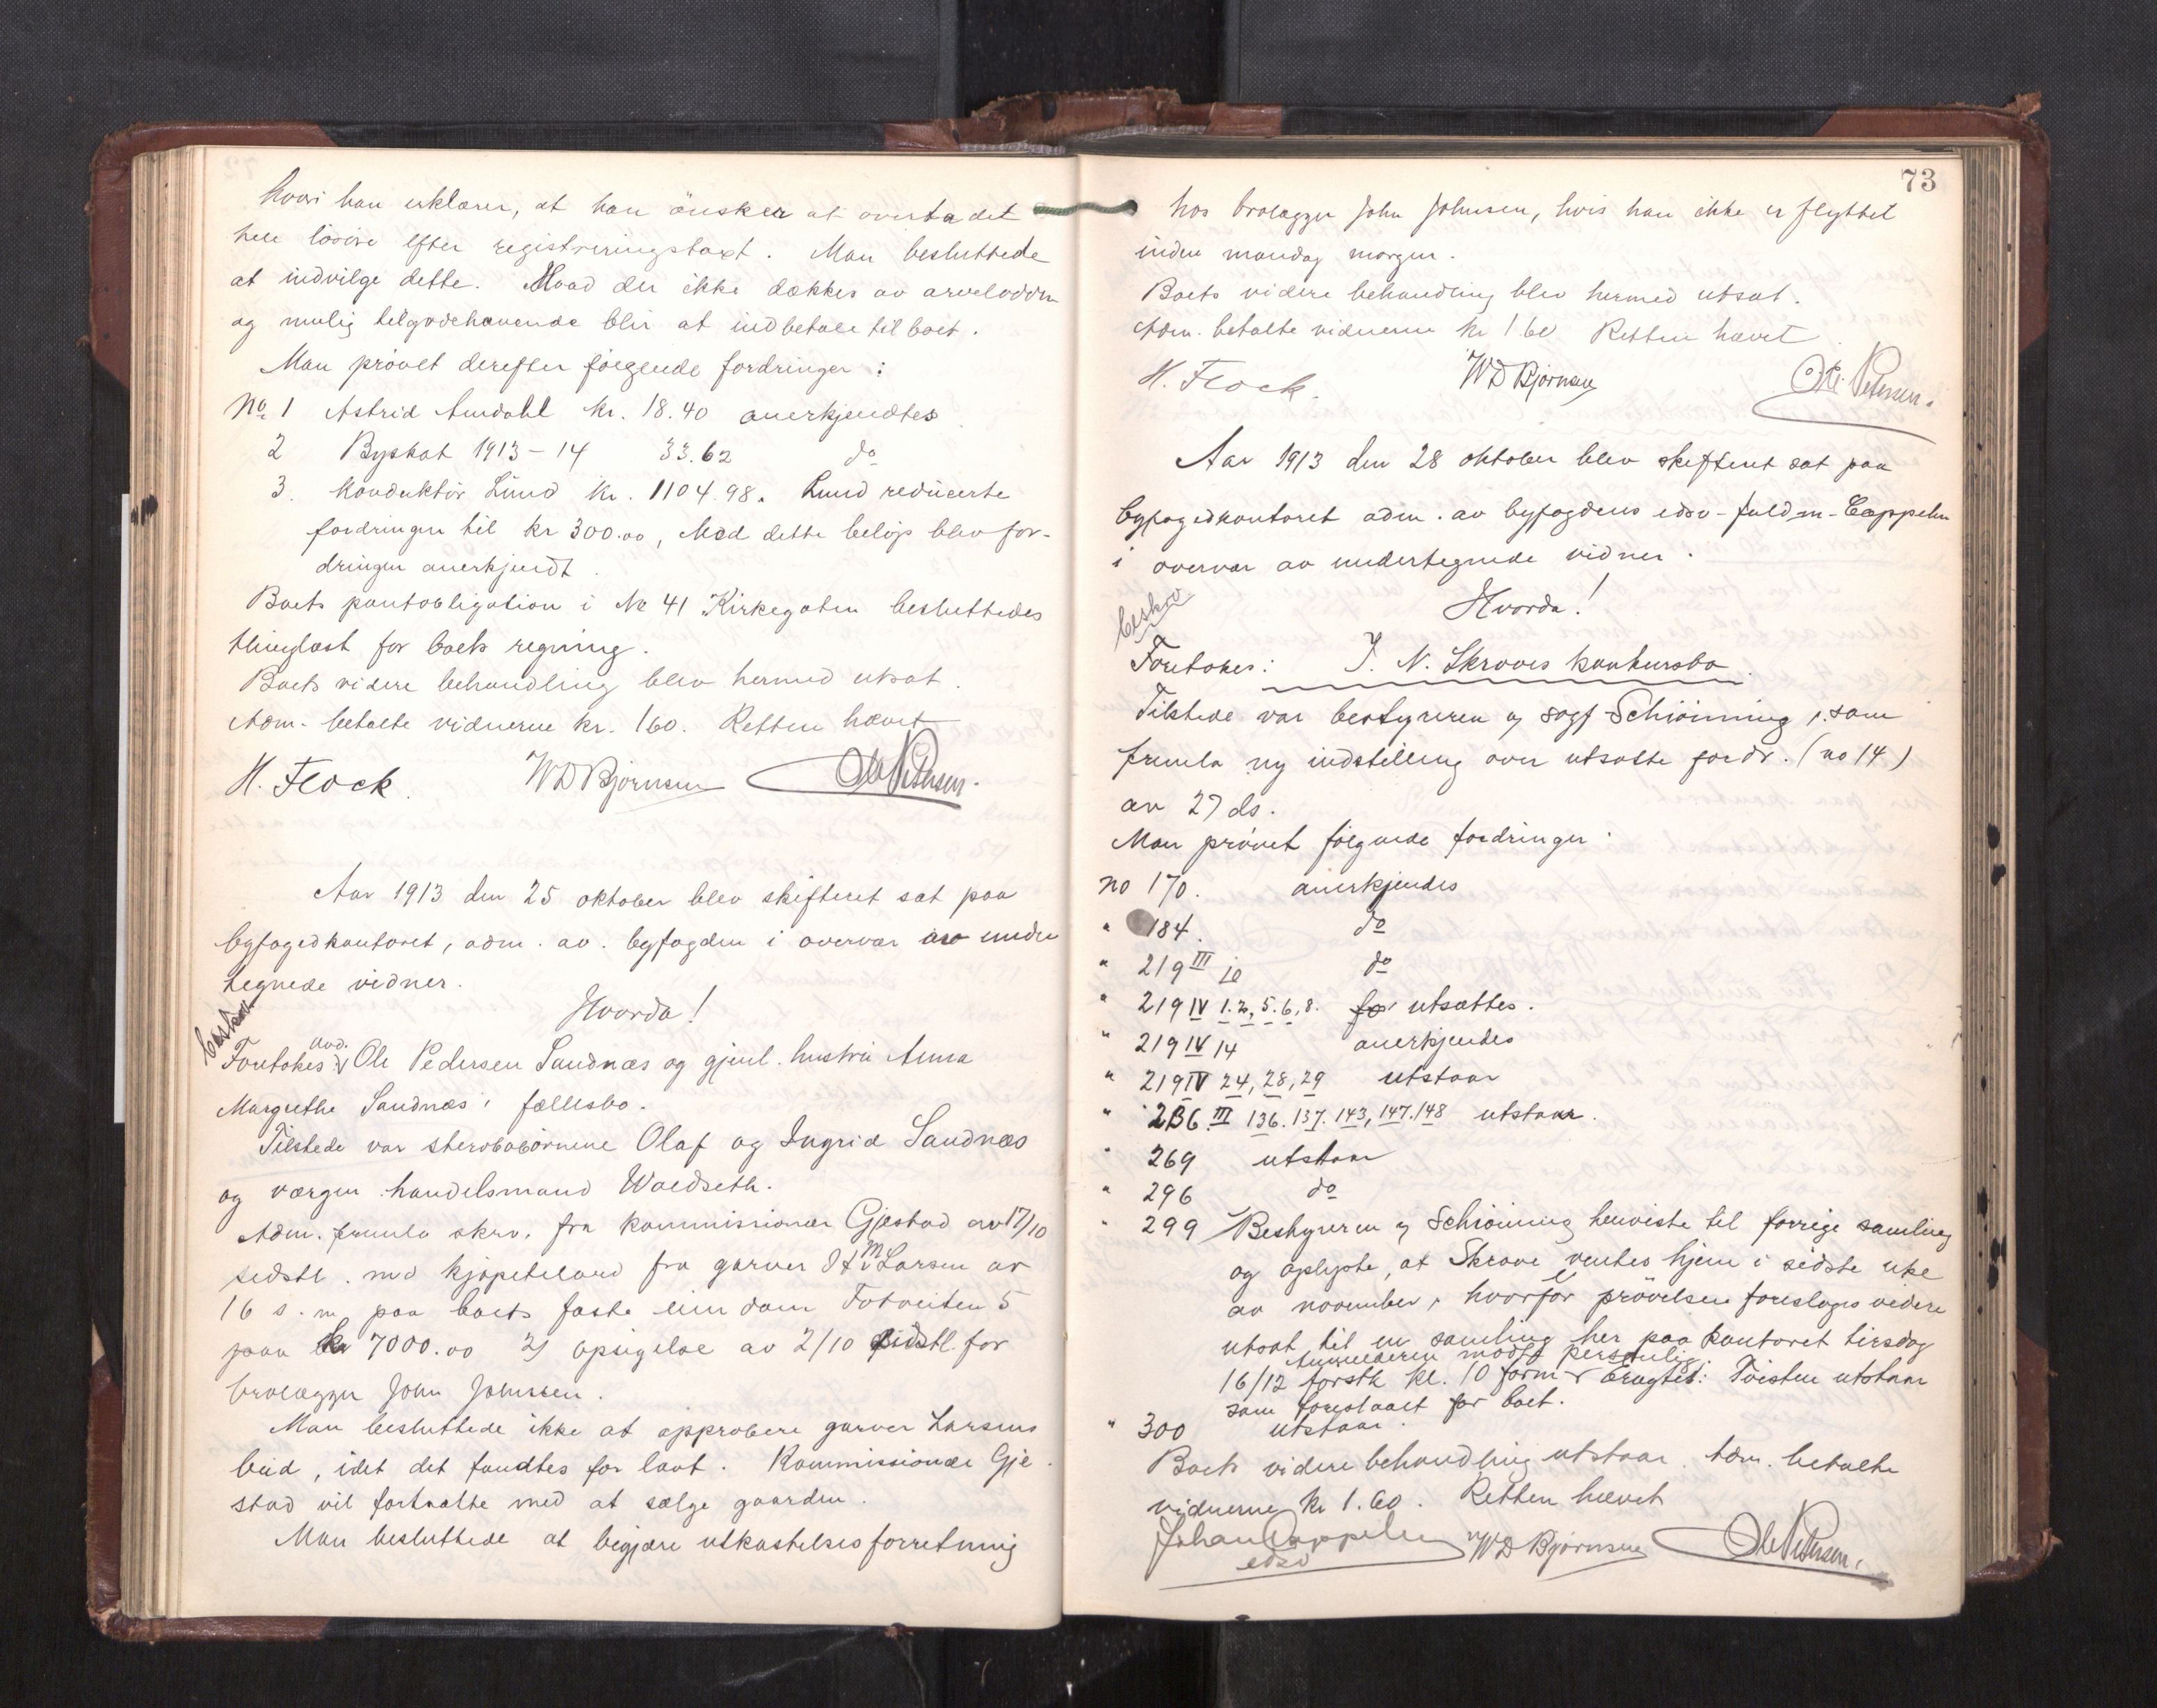 hvori han erklærer, at han önsker at overta det
hele lösöre efter registreringstaxt. Man besluttede
at indvilge dette. Hvad der ikke dækkes av arvelodden
og mulig tilgodehavende blir at indbetale til boet.
Man prövet derefter fölgende fordringer:
No 1 Astrid Amdahl kr. 18.40 anerkjendtes
2 Byskat 1913-14 33.62 do
3. Konduktör Lund kr. 1104.98. Lund reducerte
fordringen til kr 300.00, Med dette belöp blev for-
dringen anerkjendt.
Boets pantobligation i No 41 Kirkegaten besluttedes
thinglæst for boets regning.
Boets videre behandling blev hermed utsat.
Adm. betalte vidnerne kr. 1.60. Retten hævet
H. Flock. WD Bjørnsen Ole Petersen.
Aar 1913 den 25 oktober blev skifteret sat paa
byfogedkontoret, adm. av. byfogden i overvær av under
tegnede vidner.
Hvorda!
beskrevet
Foretokes: avd. Ole Pedersen Sandnæs og gjenl. hustru Anna
Margrethe Sandnæs' fællesbo.
Tilstede var sterbobörnene Olaf og Ingrid Sandnæs
og værgen handelsmand Waldseth.
Adm. fremla skrv. fra kommissionær Gjestad av 17/10
sidstl. med kjøpetilbud fra garver H M Larsen av
16 s. m. paa boets faste eiendom Totveiten 5
paa kr 7000.00 2) opsigelse av 2/10 sidstl. for
brolægger John Johnsen.
Man besluttede ikke at approbere garver Larsens
bud, idet det fandtes for lavt. Kommissionær Gje
stad vil fortsætte med at sælge gaarden.
Man besluttede at begjære utkastelsesforretning
73
hos brolægger John Johnsen, hvis han ikke er flyttet
inden mandag morgen.
Boets videre behandling blev hermed utsat.
Adm. betalte vidnerne kr 1 60 Retten hævet.
H. Flock. WD Bjørnsen Ole Petersen.
Aar 1913 den 28 oktober blev skifteret sat paa
byfogedkontoret adm. av byfogdens edsv-fuldm-Cappelen
i overvær av undertegnede vidner.
Hvorda!
beskrv
Foretokes: J. N. Skroves konkursbo.
Tilstede var bestyreren og sagf Schiönning, som
fremla ny indstilling over utsatte fordr. (no 14)
av 27 ds.
Man prövet fölgende fordringer:
no 170. anerkjendes
" 184. do
" 219 III je do
" 219 IV 1.2, 5.6, 8. for utsattes.
" 219 IV 14 anerkjendes
" 219 IV 24, 28, 29 utstaar
" 236. III 136. 137. 143, 147. 148 utstaar.
" 269 utstaar
" 296 do
" 299 Bestyreren og Schiönning henviste til forrige samling
og oplyste, at Skrove ventes hjem i sidste uke
av november, hvorfor prövelsen foresloges videre
utsat til en samling her paa kontoret tirsdag
16/12 förstk kl. 10 form Anmelderen mödt personlig. Eragtet: Tvisten utstaar
som foreslaaet for boet.
" 300 utstaar.
Boets videre behandling utstaar. Adm. betalte
vidnerne kr 1.60. Retten hævet
Johan Cappelen WD Bjørnsen Ole Petersen.
edsv